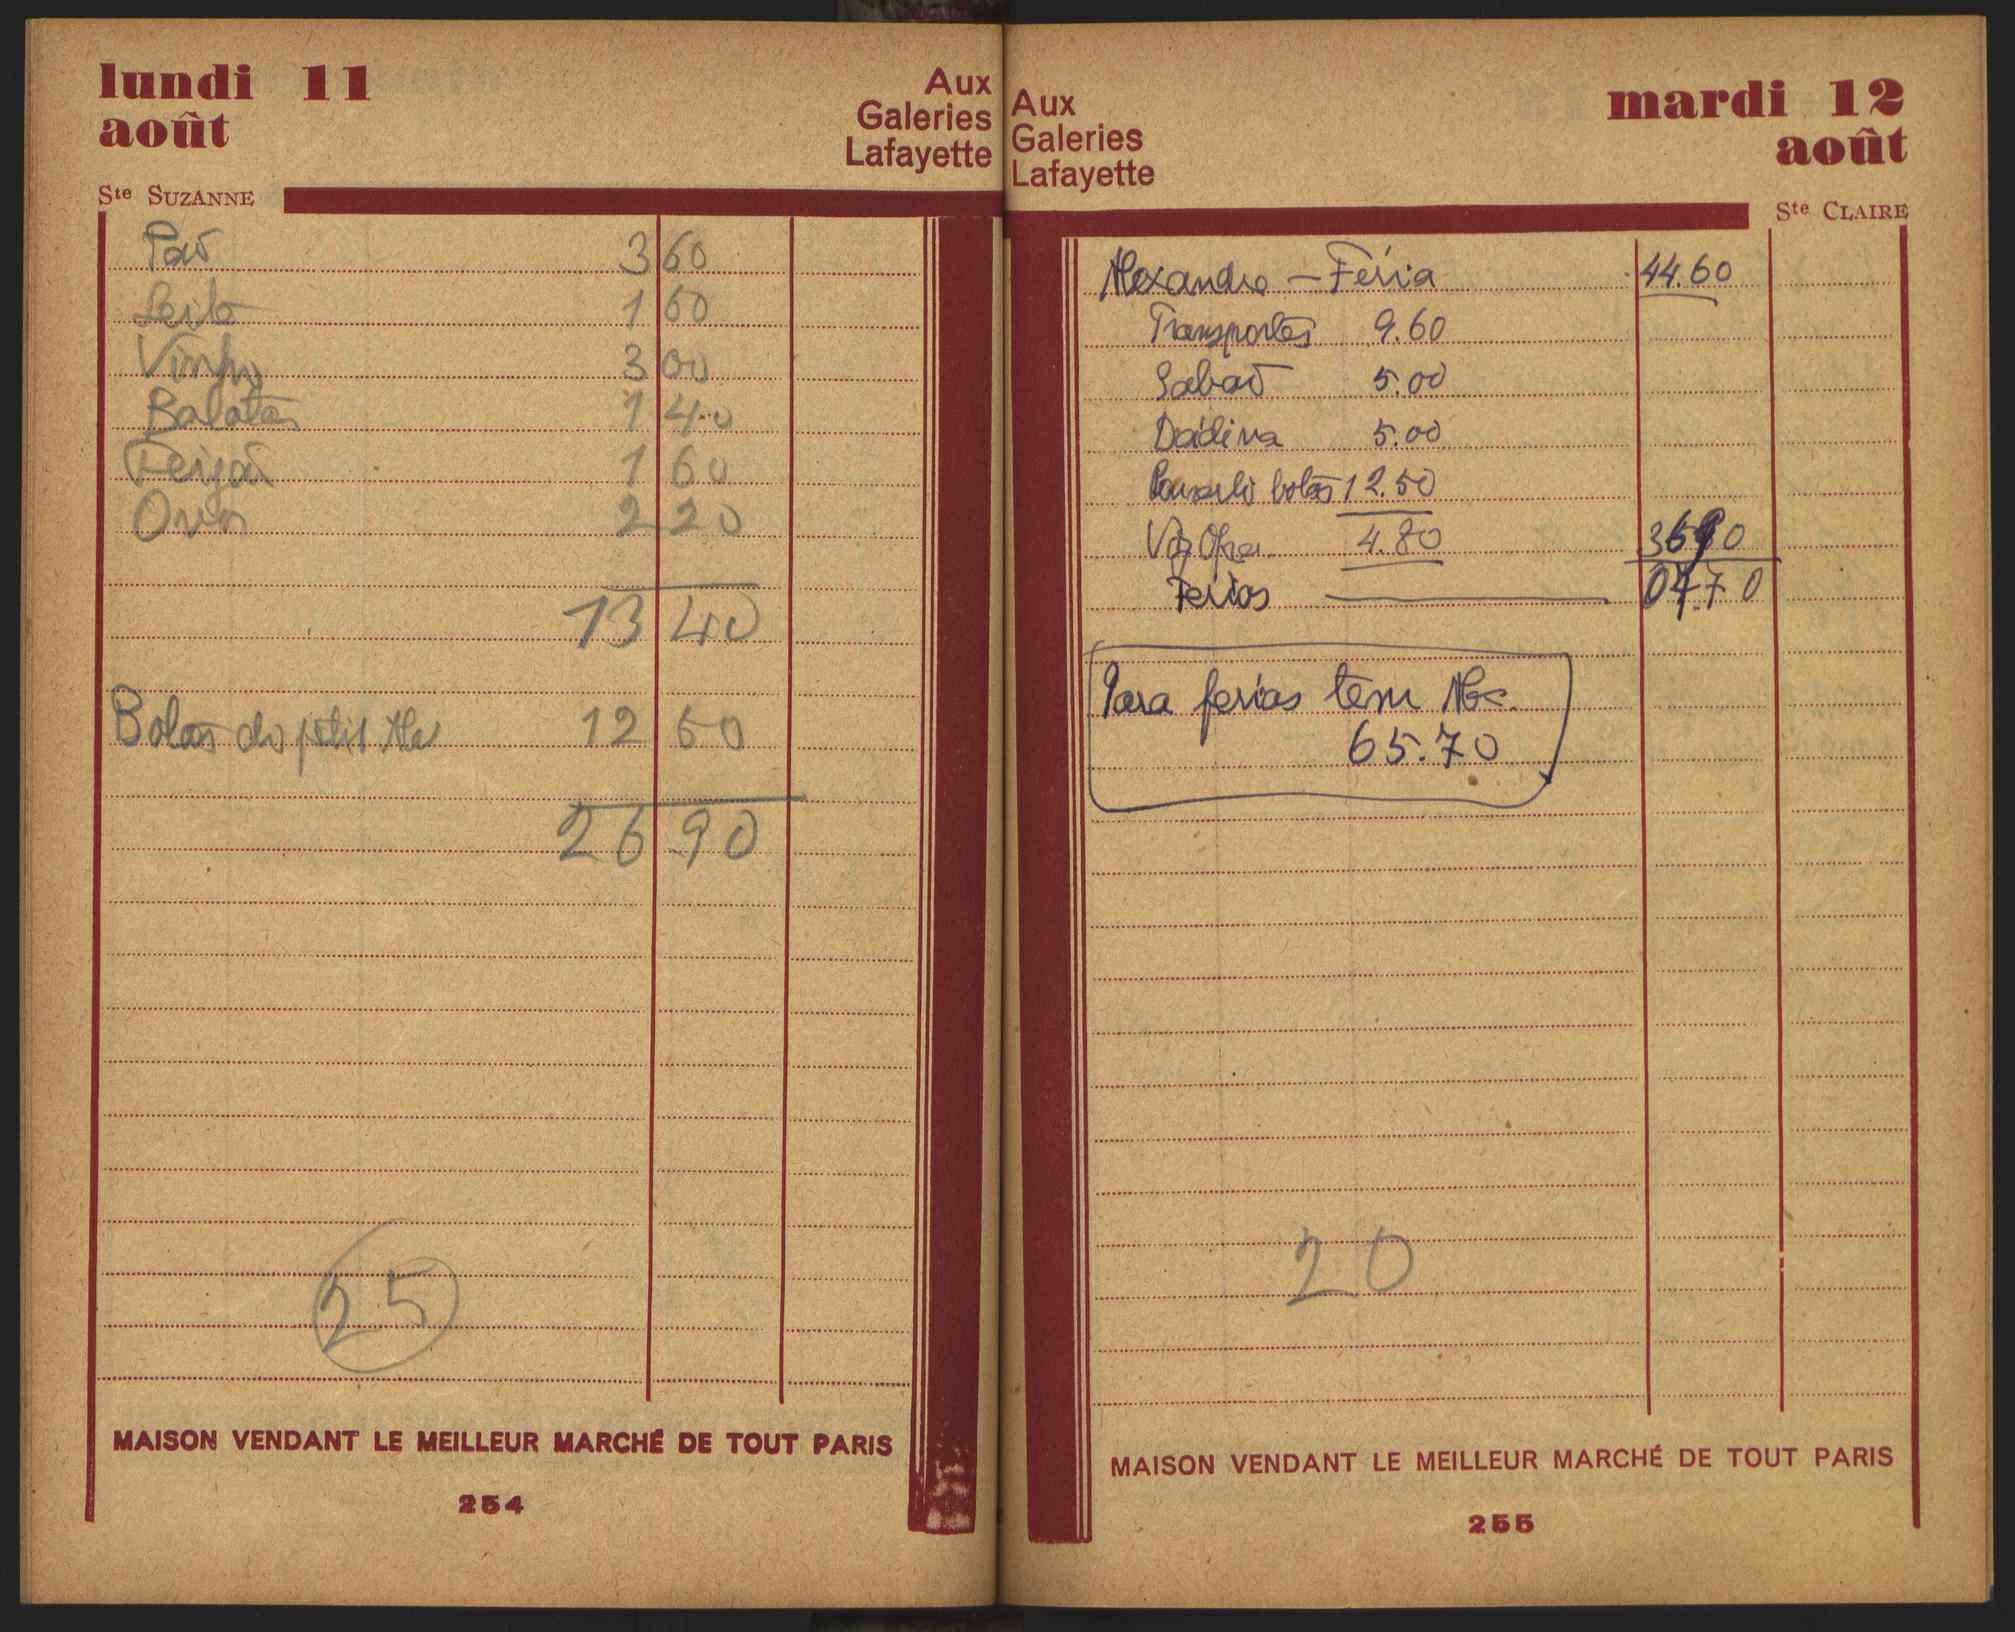 lundi 11
août
Aux
Galeries
Lafayette
Ste SUZANNE
Paõ 3 60
Leite 1 60
Vinho 3 00
Batatas 1 40
Feijaõ 1 60
Ovos 2 20
13 40
Botas do petit Ale 12 50
26 90
25
MAISON VENDANT LE MEILLEUR MARCHÉ DE TOUT PARIS
254
Aux
Galeries
Lafayette
mardi 12
août
Ste CLAIRE
Alexandre - Féria 44.60
Transportes 9.60
Sabaõ 5.00
Dádiva 5.00
botas 12.50
4.80 3690
Ferias 0770
Para ferias tem Alex.
65.70
20
MAISON VENDANT LE MEILLEUR MARCHÉ DE TOUT PARIS
255